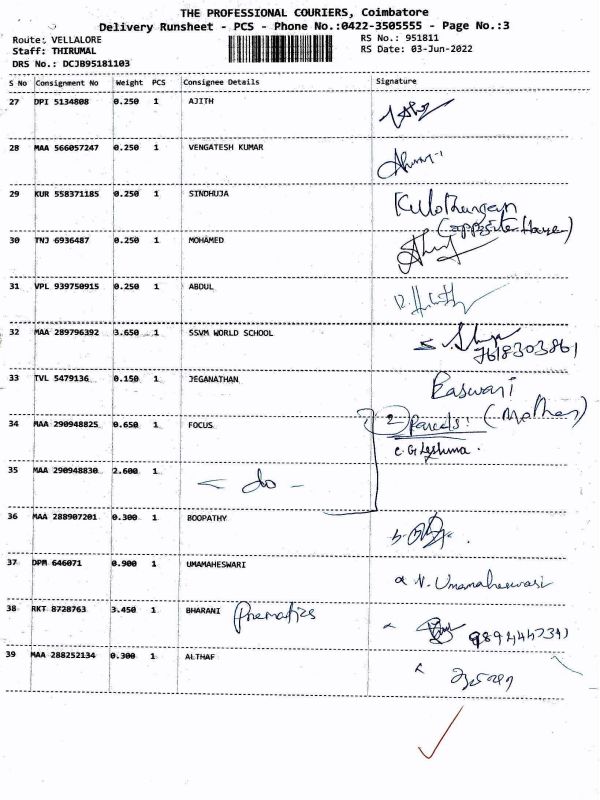 THE PROFESSIONAL COURIERS, Coimbatore
Delivery Runsheet - PCS - Phone No.:0422-3505555 - Page No.:3
Route: VELLALORE
RS No.: 951811
Staff: THIRUMAL
RS Date: 03-Jun-2022
DRS No.: DCJB95181103
S No Consignment No Weight PCS Consignee Details Signature
27 DPI 5134808 0.250 1 AJITH
28 MAA 566057247 0.250 1 VENGATESH KUMAR
29 KUR 558371185 0.250 1 SINDHUJA
(opposite House)
30 TNJ 6936487 0.250 1 MOHAMED
31 VPL 939750915 0.250 1 ABDUL
32 MAA 289796392 3.650 1 SSVM WORLD SCHOOL
7618303861
33 TVL 5479136 0.150 1 JEGANATHAN
(Mother)
34 MAA 290948825 0.650 1 FOCUS 2 Parcels!
35 MAA 290948830 2.600 1 - do -
36 MAA 288907201 0.300 1 BOOPATHY
37 DPM 646071 0.900 1 UMAMAHESWARI N. Umamaheswari
38 RKT 8728763 3.450 1 BHARANI
39 MAA 288252134 0.300 1 ALTHAF